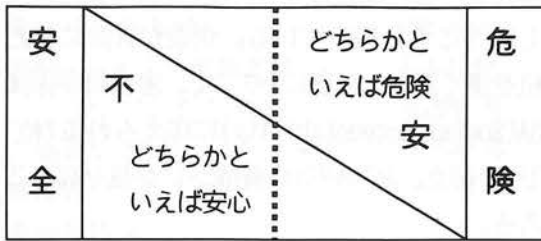 安全
不安
どちらかと
いえば安心
どちらかと
いえば危険
危険